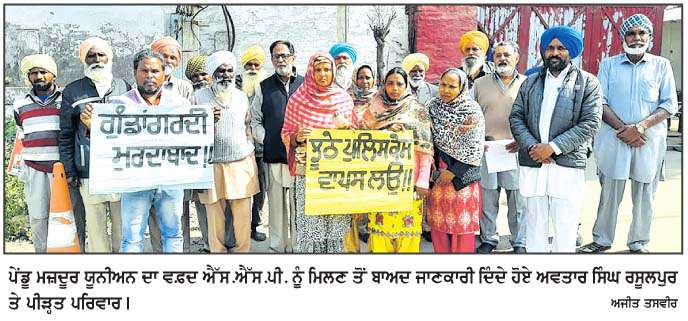 ਗੁੰਡਾਂਗਰਦੀ
ਮੁਰਦਾਬਾਦ!!
ਝੂਠੇ ਪੁਲਿਸਕੇਸ
ਵਾਪਸ ਲਓ!!
ਪੇਂਡੂ ਮਜ਼ਦੂਰ ਯੂਨੀਅਨ ਦਾ ਵਫ਼ਦ ਐੱਸ.ਐੱਸ.ਪੀ. ਨੂੰ ਮਿਲਣ ਤੋਂ ਬਾਅਦ ਜਾਣਕਾਰੀ ਦਿੰਦੇ ਹੋਏ ਅਵਤਾਰ ਸਿੰਘ ਰਸੂਲਪੁਰ
ਤੇ ਪੀੜ੍ਹਤ ਪਰਿਵਾਰ।
ਅਜੀਤ ਤਸਵੀਰ